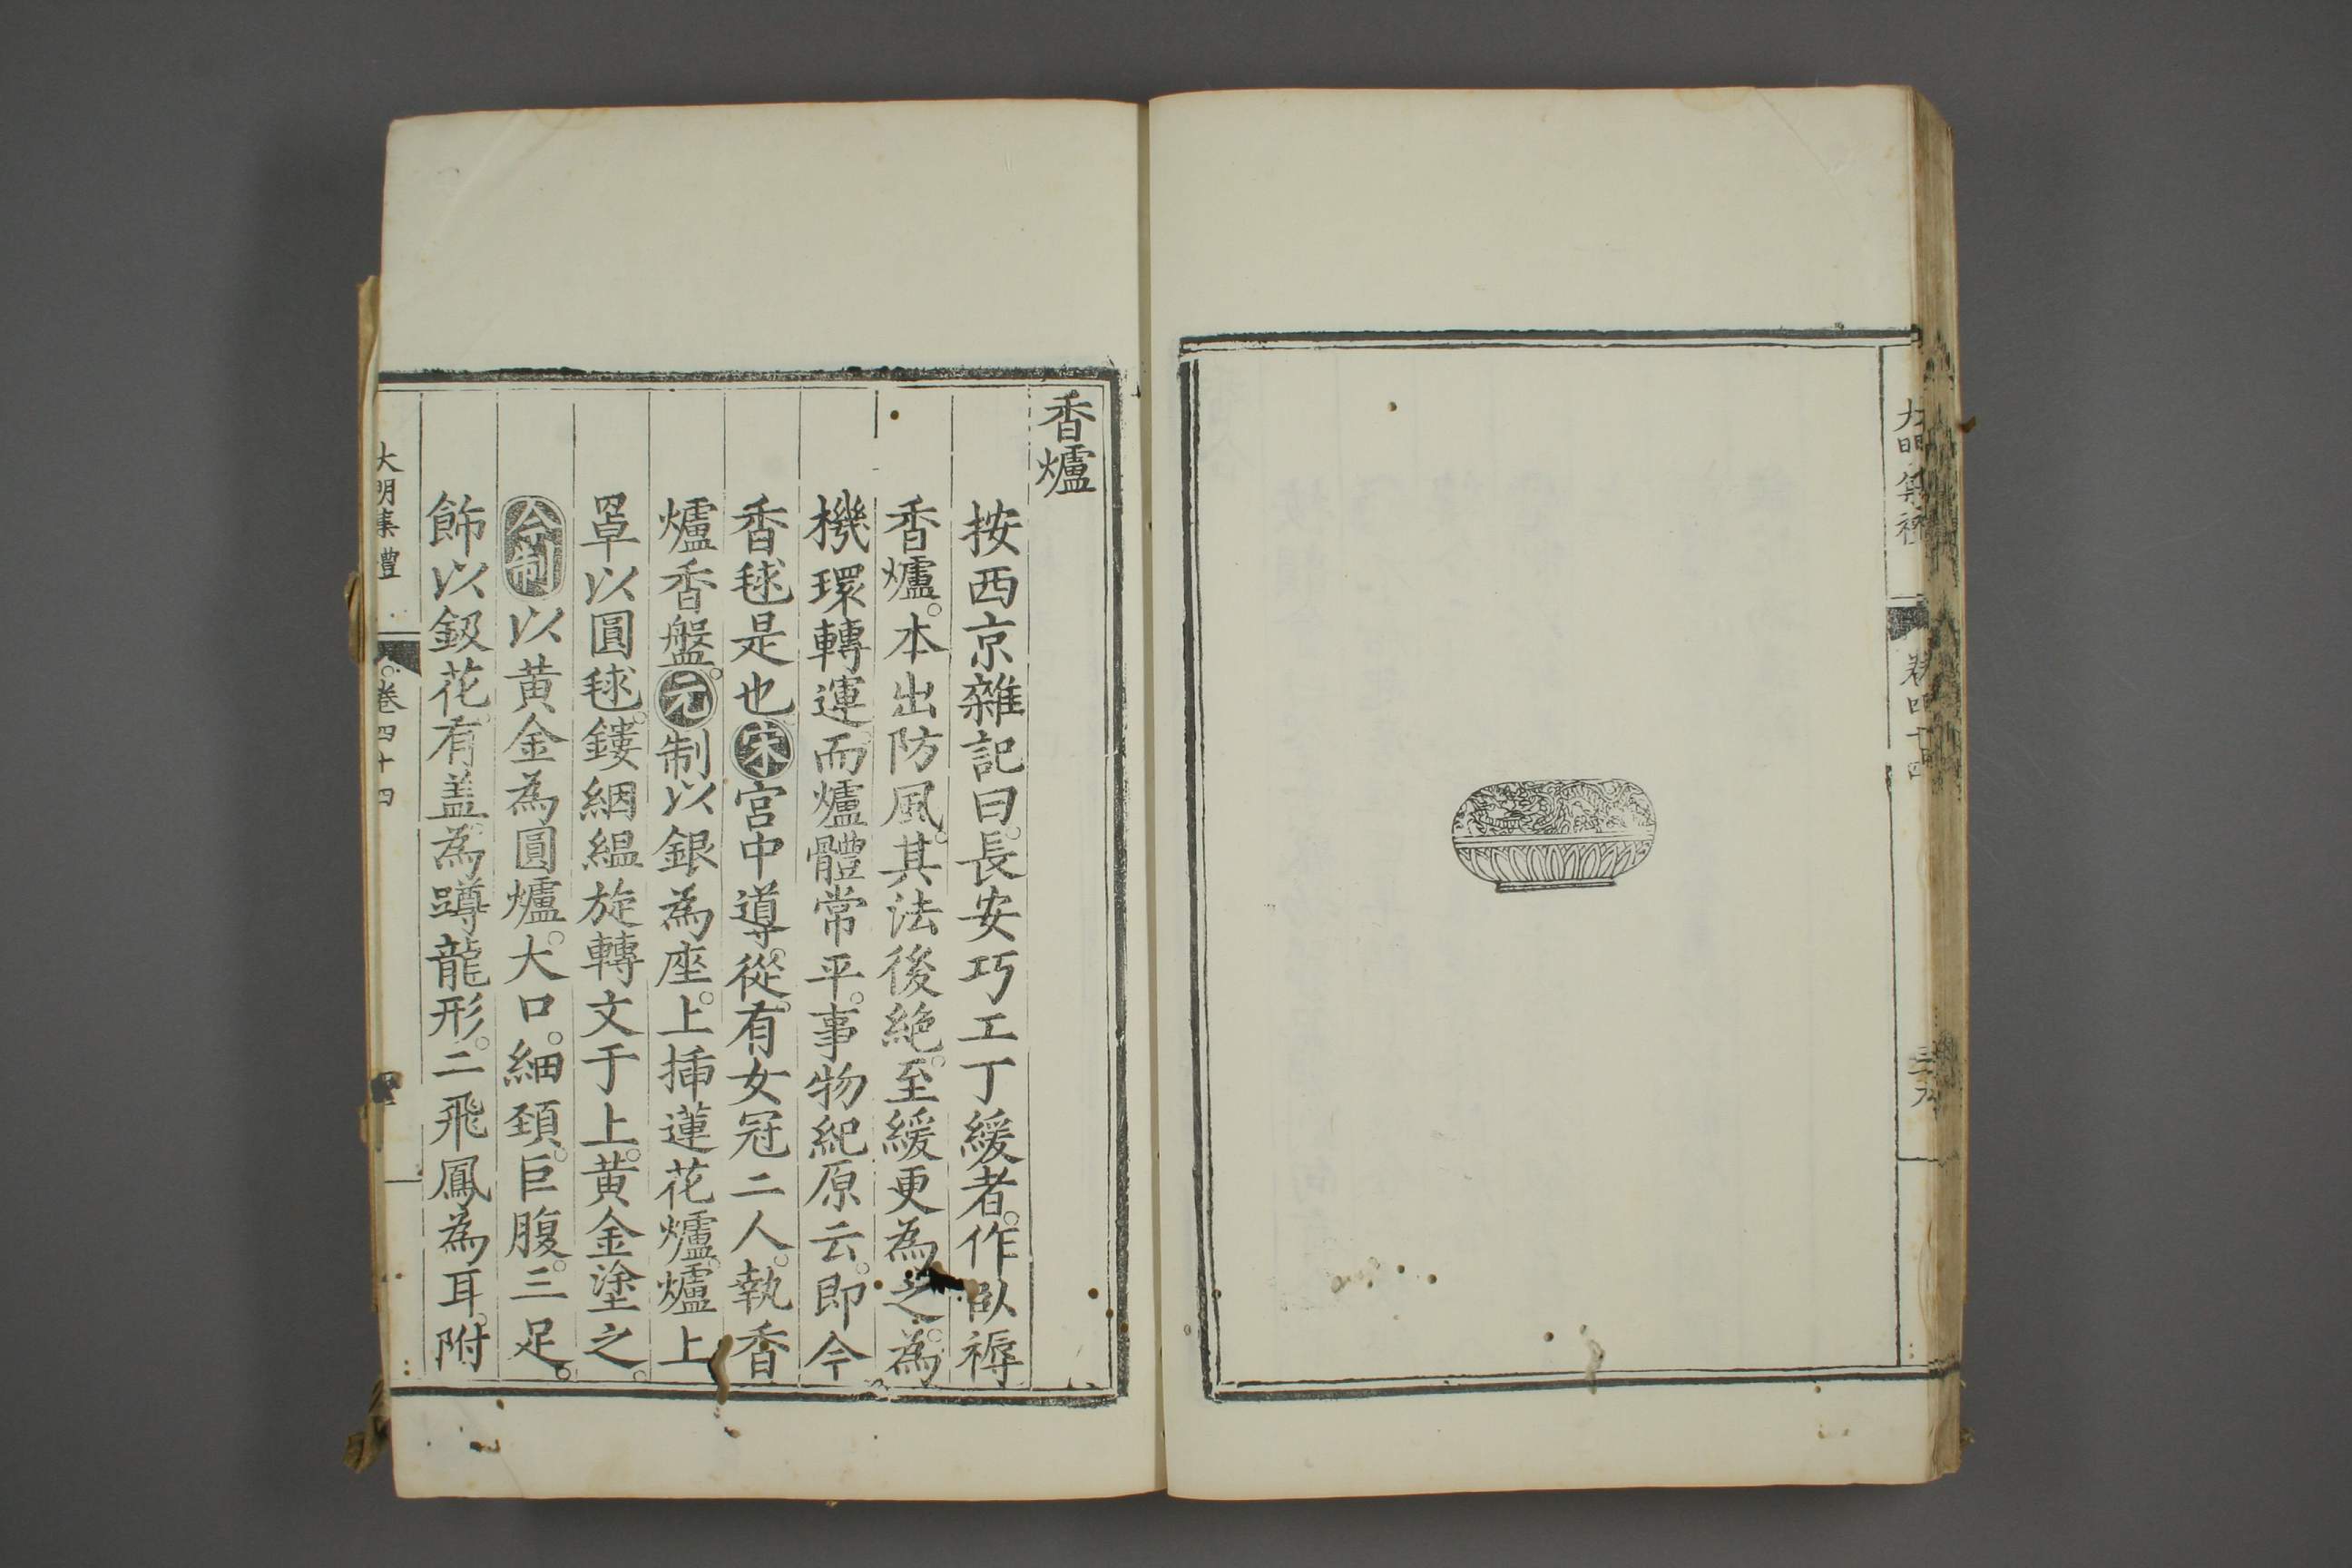 大明集禮
卷四十四
香爐
按西京雜記曰長安巧工丁緩者作臥褥
香爐本出防風其法後絶至緩更為之為
機環轉運而爐體常平事物紀原云即今
香毬是也宋宮中導從有女冠二人執香
爐香盤元制以銀為座上揷蓮花爐爐上
罩以圓毬鏤絪緼旋轉文于上黄金塗之
今制以黄金為圓爐大口細頚巨腹三足
飾以鈒花有盖為蹲龍形二飛鳳為耳附
大明集禮
卷四十四